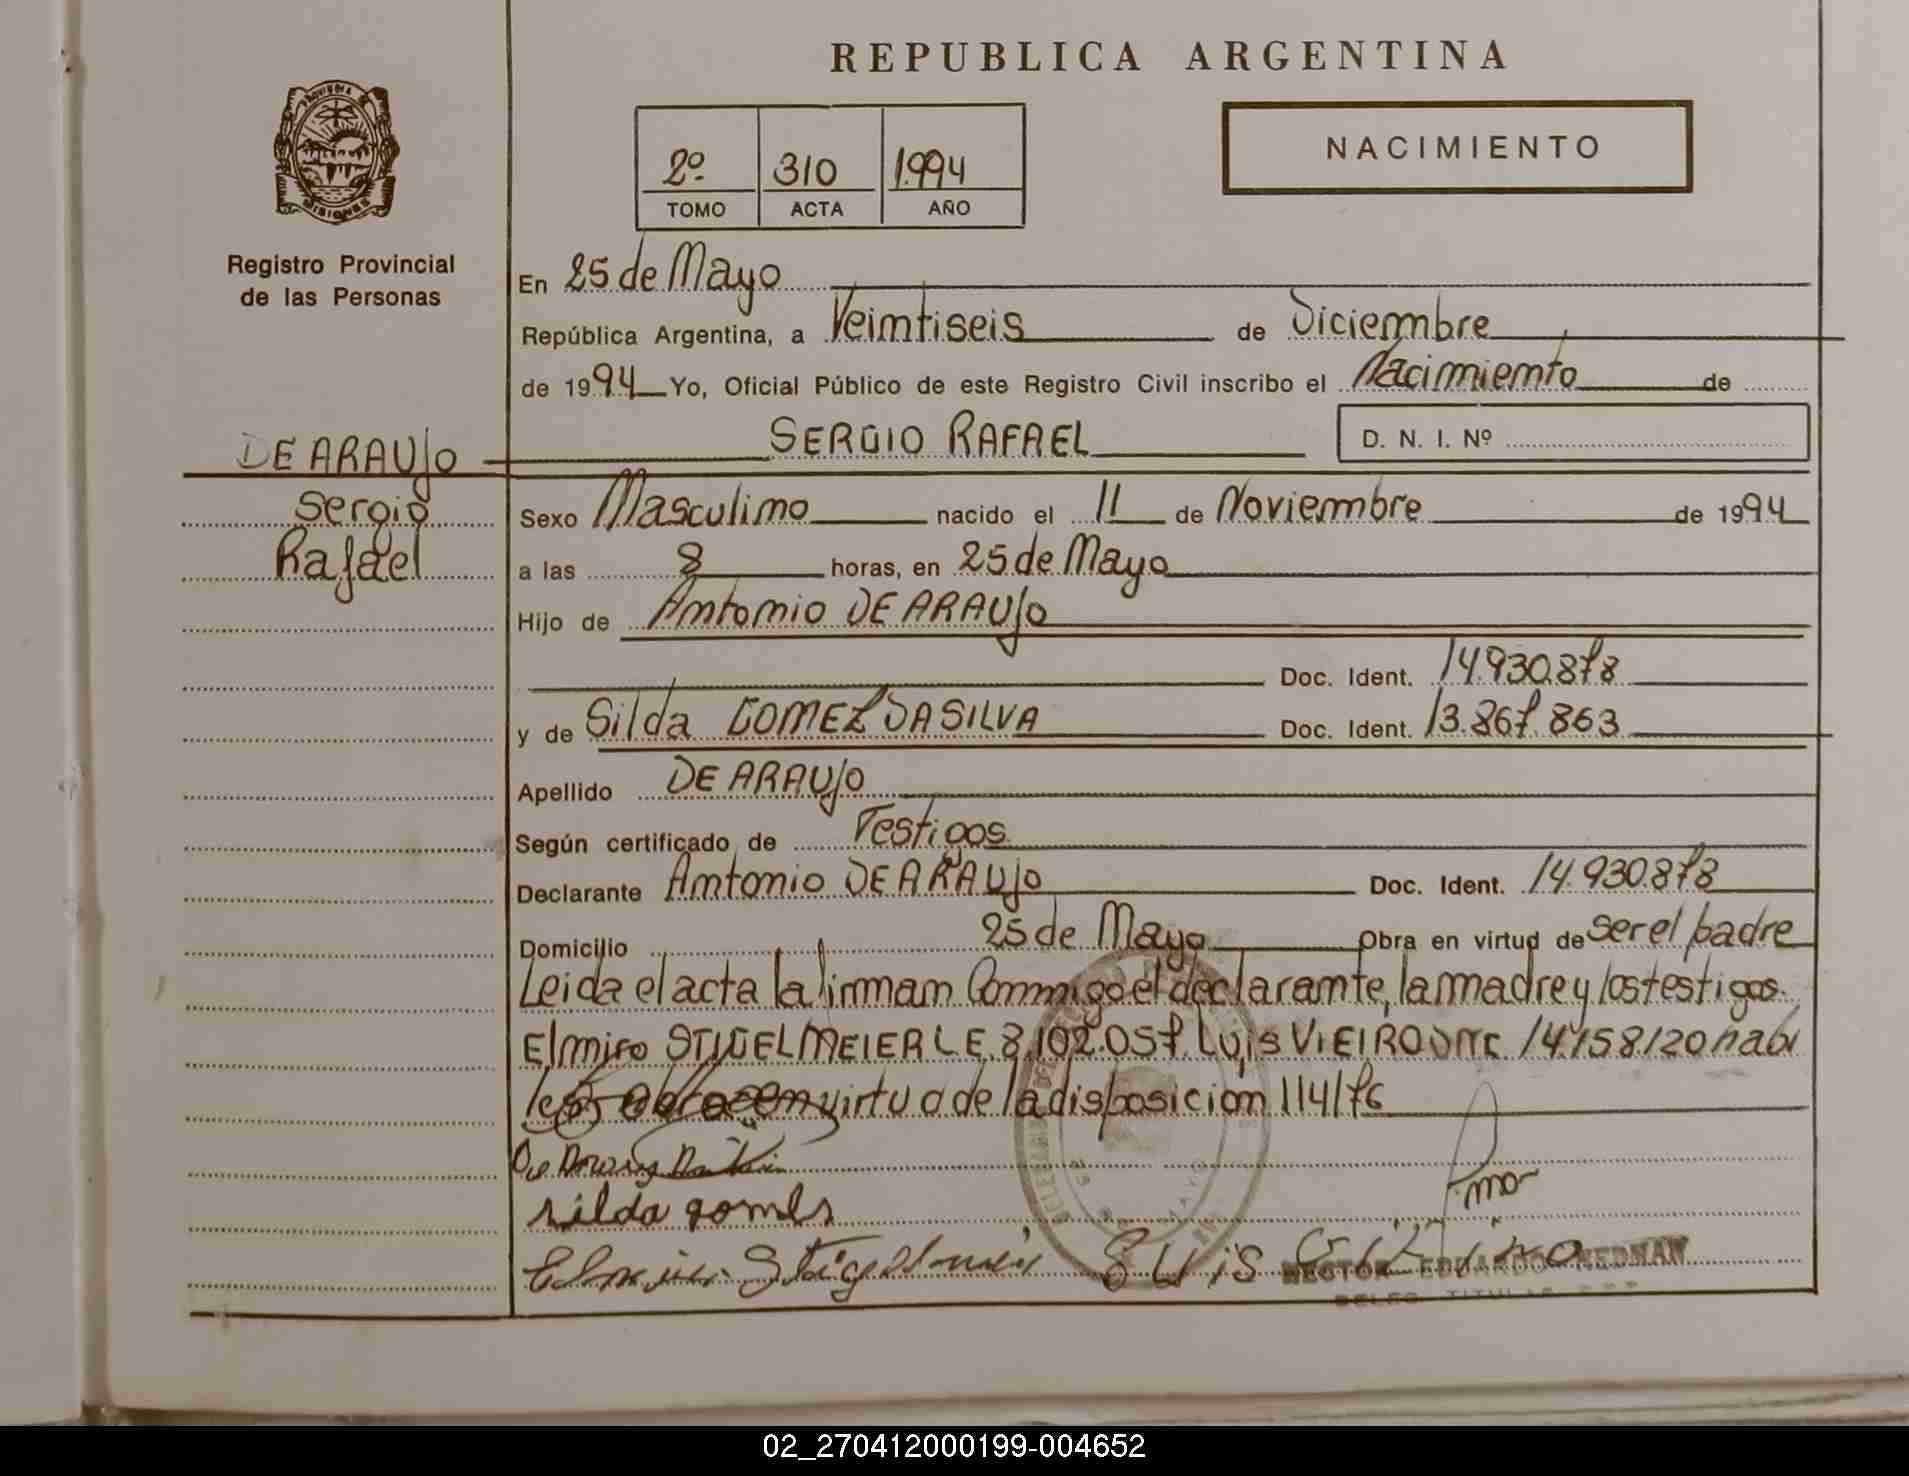 REPUBLICA ARGENTINA
NACIMIENTO
2º 310 1994
TOMO ACTA AÑO
Registro Provincial
de las Personas
En 25 de Mayo
República Argentina, a Veintiseis de Diciembre
de 1994 Yo, Oficial Público de este Registro Civil inscribo el Nacimiento de
SERGIO RAFAEL D. N. I. Nº
DE ARAUJO
Sergio
Rafael
Sexo Masculino nacido el 11 de Noviembre de 1994
a las 8 horas, en 25 de Mayo
Hijo de Antonio DE ARAUJO
Doc. Ident. 14.930.878
y de Silda GOMEZ DA SILVA Doc. Ident. 13.867.863
Apellido DE ARAUJO
Según certificado de Testigos
Declarante Antonio DE ARAUJO Doc. Ident. 14.930.878
Domicilio 25 de Mayo Obra en virtud de ser el padre
Leida el acta la firman Conmigo el declarante, la madre y los testigos
Elmiro STIGELMEIER L E. 8.102.057. Luis VIEIRO DNI 14.158120 habi
les obrase en virtud de la disposición 114/76
silda gomes
Luis
HECTOR EDUARDO
02_270412000199-004652